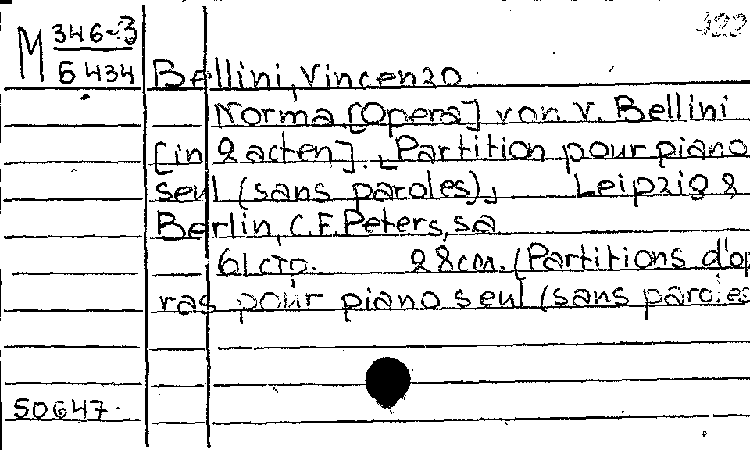 M 346-3
Б 434
Bellini, Vincenzo
Norma [Opera] von V. Bellini
[in 2 acten]. Partition pour piano
seul (sans paroles),, Leipzig &
Berlin, C.F. Peters, sa
61 стр. 28 cm. (Partitions d'op
ras pour piano seul (sans paroles
50647